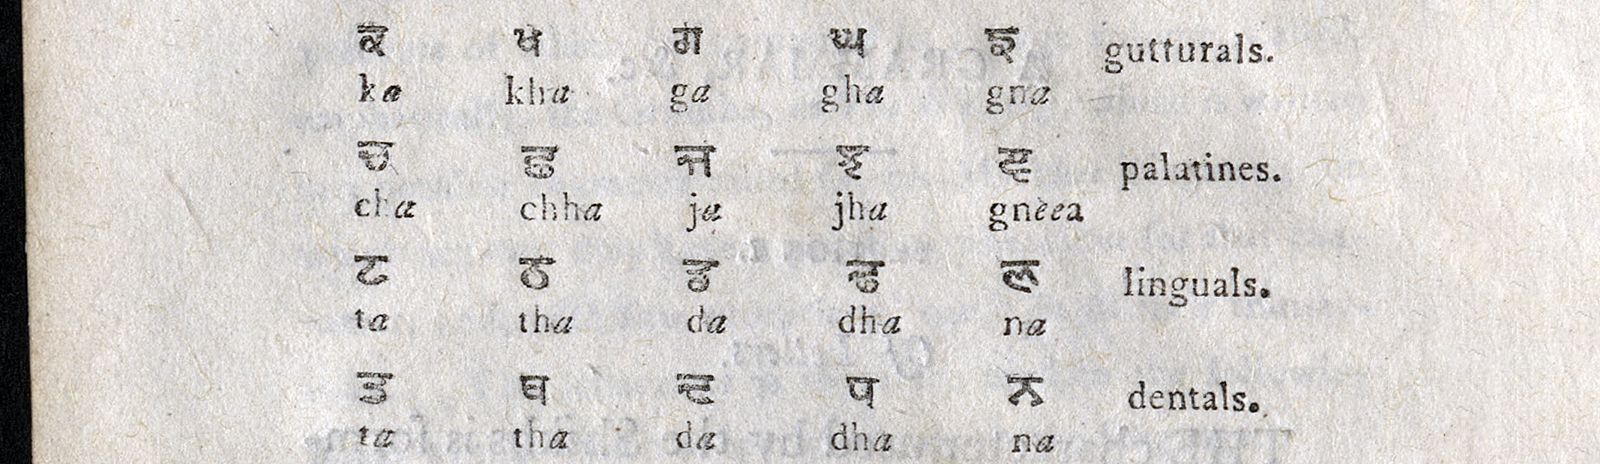 ਕ ਖ ਗ ਘ ਙ gutturals.
ka kha ga gha gna
ਚ ਛ ਜ ਝ ਞ palatines.
cha chha ja jha gneea
ਟ ਠ ਡ ਢ ਲ linguals.
ta tha da dha na
ਤ ਥ ਦ ਧ ਨ dentals.
ta tha da dha na